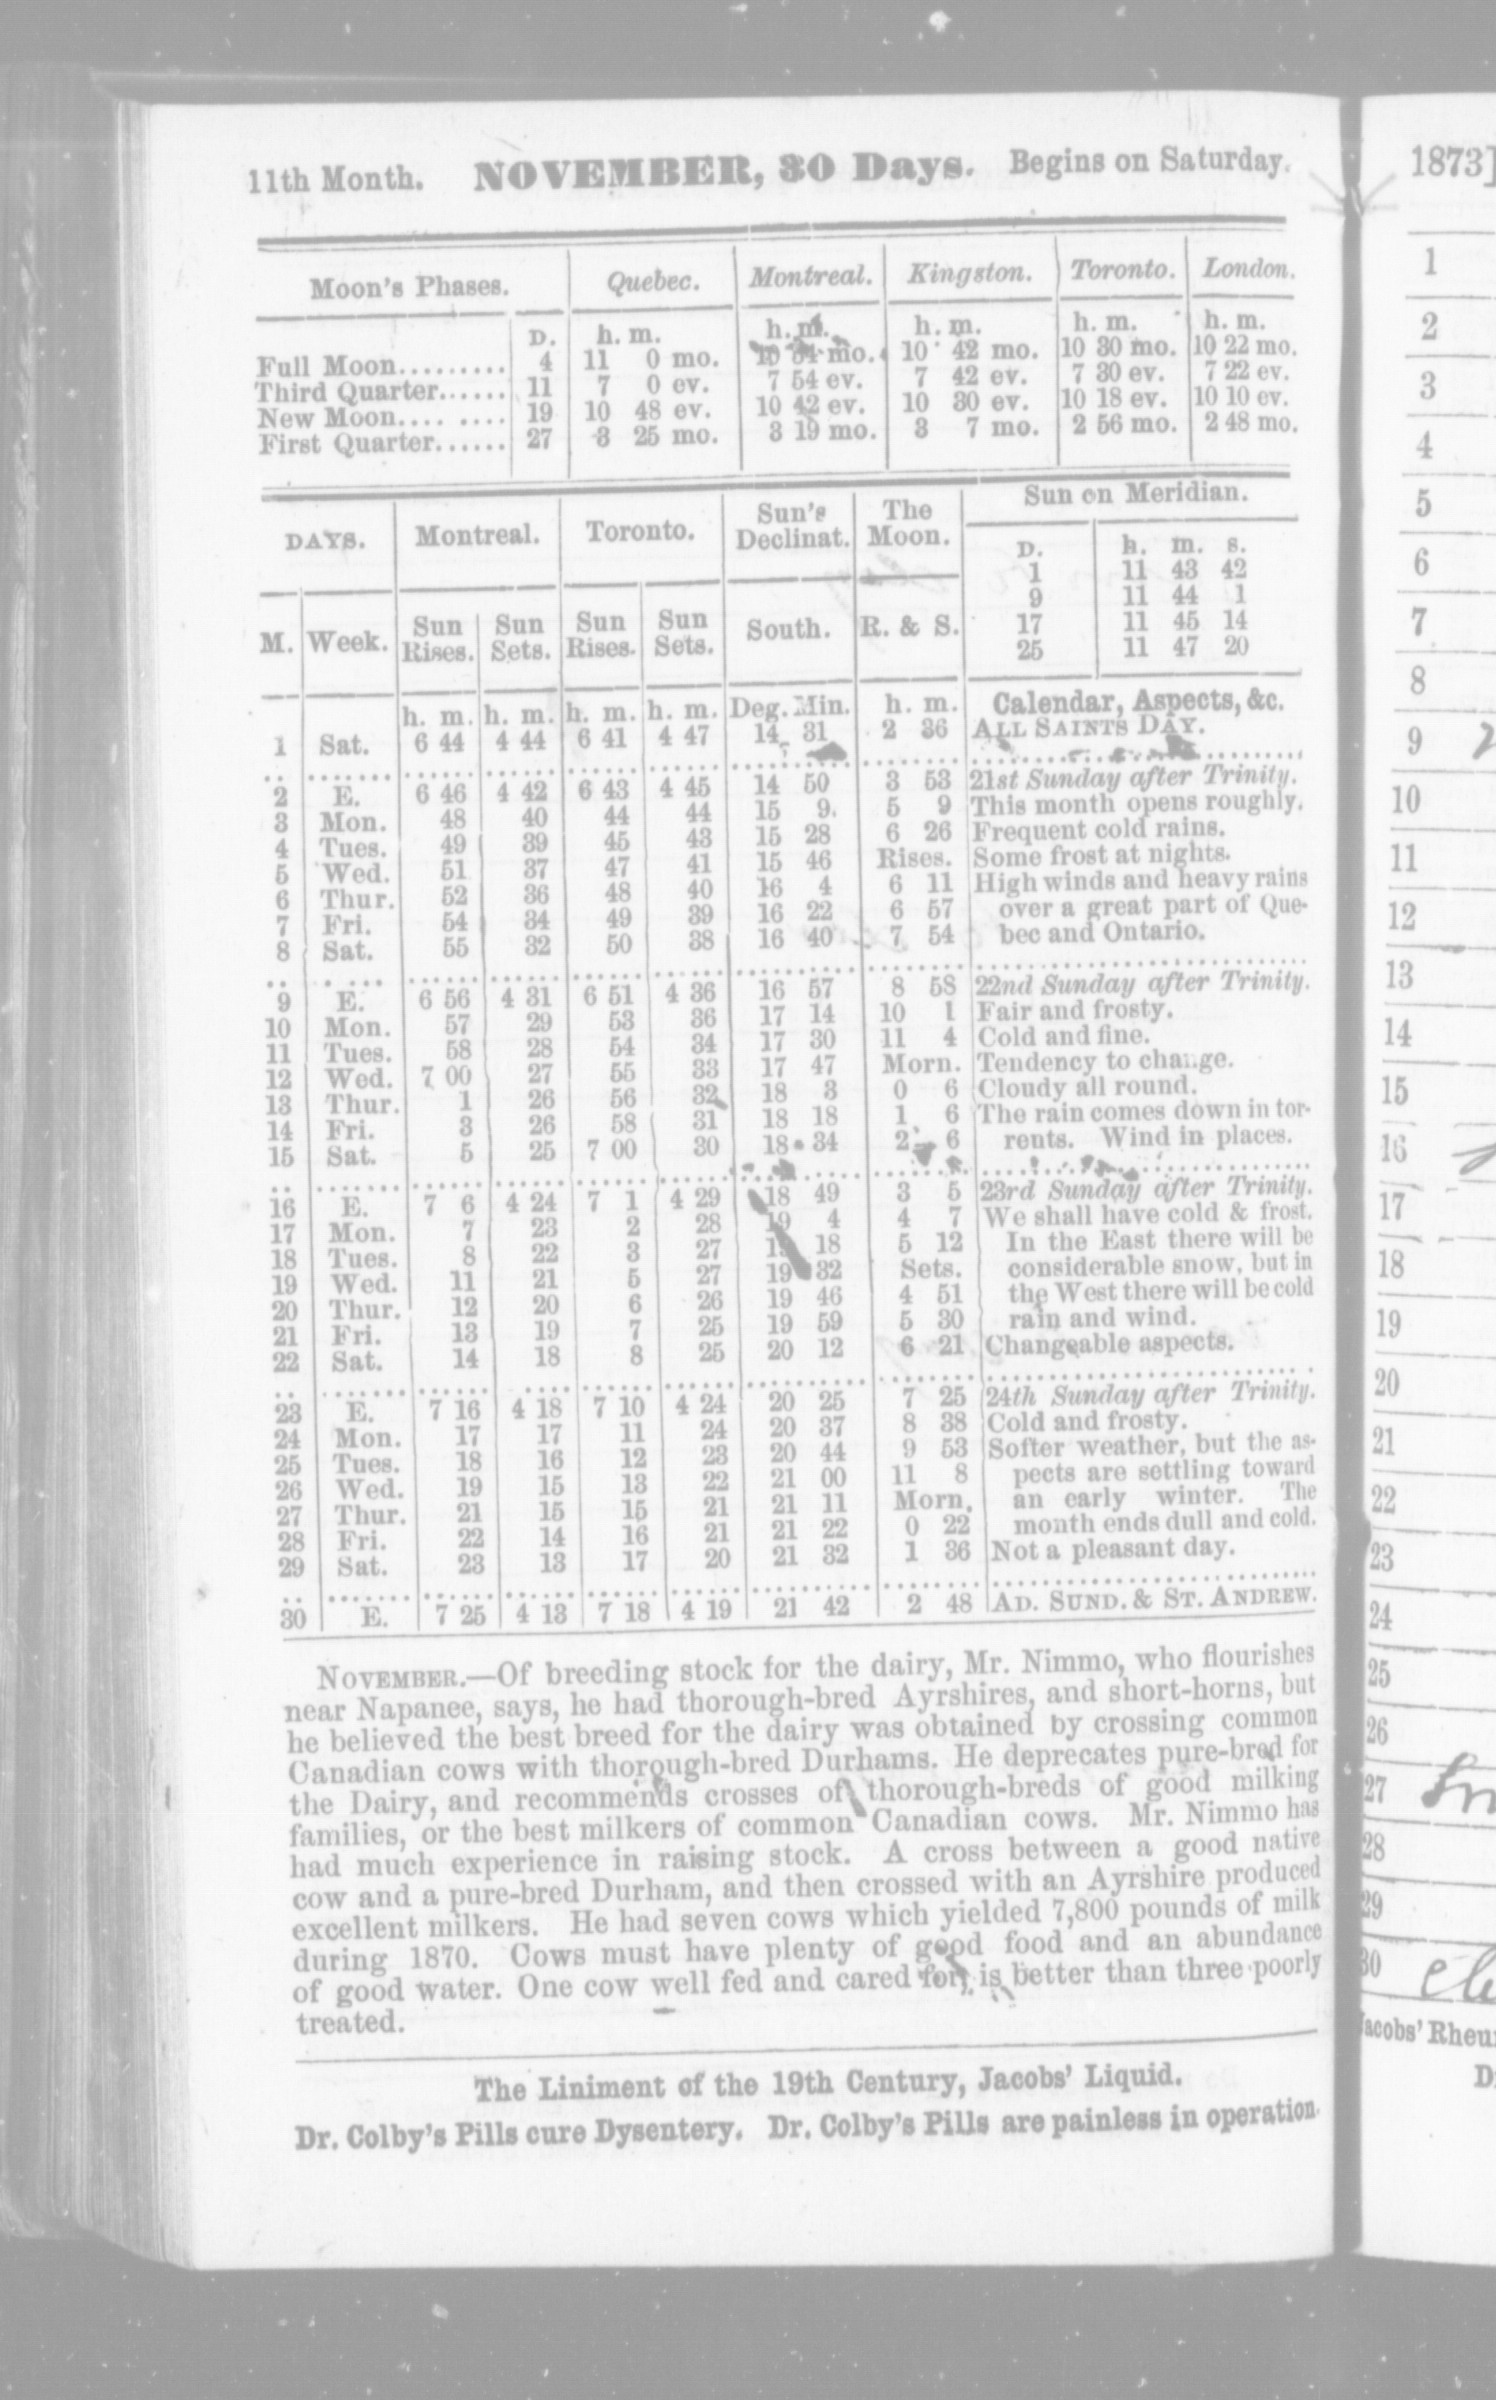 11th Month. NOVEMBER, 30 Days. Begins on Saturday.
Moon's Phases. Quebec. Montreal. Kingston. Toronto. London.
D. h. m. h. m. h. m. h. m. h. m.
Full Moon......... 4 11 0 mo. 10 54 mo. 10 42 mo. 10 30 mo. 10 22 mo.
Third Quarter...... 11 7 0 ev. 7 54 ev. 7 42 ev. 7 30 ev. 7 22 ev.
New Moon.... .... 19 10 48 ev. 10 42 ev. 10 30 ev. 10 18 ev. 10 10 ev.
First Quarter...... 27 3 25 mo. 3 19 mo. 3 7 mo. 2 56 mo. 2 48 mo.
DAYS. Montreal. Toronto. Sun's Declinat. The Moon. Sun on Meridian.
D. h. m. s.
1 11 43 42
9 11 44 1
17 11 45 14
25 11 47 20
M. Week. Sun Rises. Sun Sets. Sun Rises. Sun Sets. South. R. & S.
h. m. h. m. h. m. h. m. Deg. Min. h. m. Calendar, Aspects, &c.
1 Sat. 6 44 4 44 6 41 4 47 14 31 2 36 ALL SAINTS DAY.
2 E. 6 46 4 42 6 43 4 45 14 50 3 53 21st Sunday after Trinity.
3 Mon. 48 40 44 44 15 9 5 9 This month opens roughly.
4 Tues. 49 39 45 43 15 28 6 26 Frequent cold rains.
5 Wed. 51 37 47 41 15 46 Rises. Some frost at nights.
6 Thur. 52 36 48 40 16 4 6 11 High winds and heavy rains
7 Fri. 54 34 49 39 16 22 6 57 over a great part of Que-
8 Sat. 55 32 50 38 16 40 7 54 bec and Ontario.
9 E. 6 56 4 31 6 51 4 36 16 57 8 58 22nd Sunday after Trinity.
10 Mon. 57 29 53 36 17 14 10 1 Fair and frosty.
11 Tues. 58 28 54 34 17 30 11 4 Cold and fine.
12 Wed. 7 00 27 55 33 17 47 Morn. Tendency to change.
13 Thur. 1 26 56 32 18 3 0 6 Cloudy all round.
14 Fri. 3 26 58 31 18 18 1 6 The rain comes down in tor-
15 Sat. 5 25 7 00 30 18 34 2 6 rents. Wind in places.
16 E. 7 6 4 24 7 1 4 29 18 49 3 5 23rd Sunday after Trinity.
17 Mon. 7 23 2 28 19 4 4 7 We shall have cold & frost.
18 Tues. 8 22 3 27 19 18 5 12 In the East there will be
19 Wed. 11 21 5 27 19 32 Sets. considerable snow, but in
20 Thur. 12 20 6 26 19 46 4 51 the West there will be cold
21 Fri. 13 19 7 25 19 59 5 30 rain and wind.
22 Sat. 14 18 8 25 20 12 6 21 Changeable aspects.
23 E. 7 16 4 18 7 10 4 24 20 25 7 25 24th Sunday after Trinity.
24 Mon. 17 17 11 24 20 37 8 38 Cold and frosty.
25 Tues. 18 16 12 23 20 44 9 53 Softer weather, but the as-
26 Wed. 19 15 13 22 21 00 11 8 pects are settling toward
27 Thur. 21 15 15 21 21 11 Morn. an early winter. The
28 Fri. 22 14 16 21 21 22 0 22 month ends dull and cold.
29 Sat. 23 13 17 20 21 32 1 36 Not a pleasant day.
30 E. 7 25 4 13 7 18 4 19 21 42 2 48 AD. SUND. & ST. ANDREW.
NOVEMBER.—Of breeding stock for the dairy, Mr. Nimmo, who flourishes
near Napanee, says, he had thorough-bred Ayrshires, and short-horns, but
he believed the best breed for the dairy was obtained by crossing common
Canadian cows with thorough-bred Durhams. He deprecates pure-bred for
the Dairy, and recommends crosses of thorough-breds of good milking
families, or the best milkers of common Canadian cows. Mr. Nimmo has
had much experience in raising stock. A cross between a good native
cow and a pure-bred Durham, and then crossed with an Ayrshire produced
excellent milkers. He had seven cows which yielded 7,800 pounds of milk
during 1870. Cows must have plenty of good food and an abundance
of good water. One cow well fed and cared for, is better than three poorly
treated.
The Liniment of the 19th Century, Jacobs' Liquid.
Dr. Colby's Pills cure Dysentery. Dr. Colby's Pills are painless in operation.
1873]
1
2
3
4
5
6
7
8
9
10
11
12
13
14
15
16
17
18
19
20
21
22
23
24
25
26
27
28
29
30
Jacobs' Rheu
D